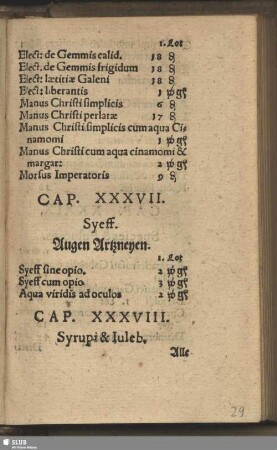 1. Lot
Elect: de Gemmis calid. 18 ₰
Elect. de Gemmis frigidum 18 ₰
Elect: lætitiæ Galeni 18 ₰
Elect: liberantis 1 wgſ
Manus Christi simplicis 6 ₰
Manus Christi perlatæ 17 ₰
Manus Christi simplicis cum aqua Ci-
namomi 1 wgſ
Manus Christi cum aqua cinamomi &
margar: 2 wgſ
Morsus Imperatoris 9 ₰
CAP. XXXVII.
Syeff.
Augen Artzneyen.
1. Lot
Syeff sine opio. 2 wgſ
Syeff cum opio 3 wgſ
Aqua viridis ad oculos 2 wgſ
CAP. XXXVIII.
Syrupi & Iuleb.
Alle
29
SLUB